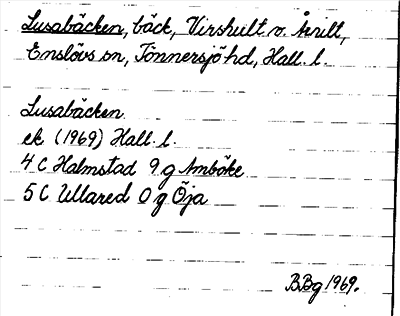 Lusabäcken, bäck, Virshult o. Årilt,
Enslövs sn, Tönnersjö hd, Hall. l.
Lusabäcken
ek (1969) Hall. l.
4 C Halmstad 9 g Amböke
5 C Ullared 0 g Öja
BBg 1969.